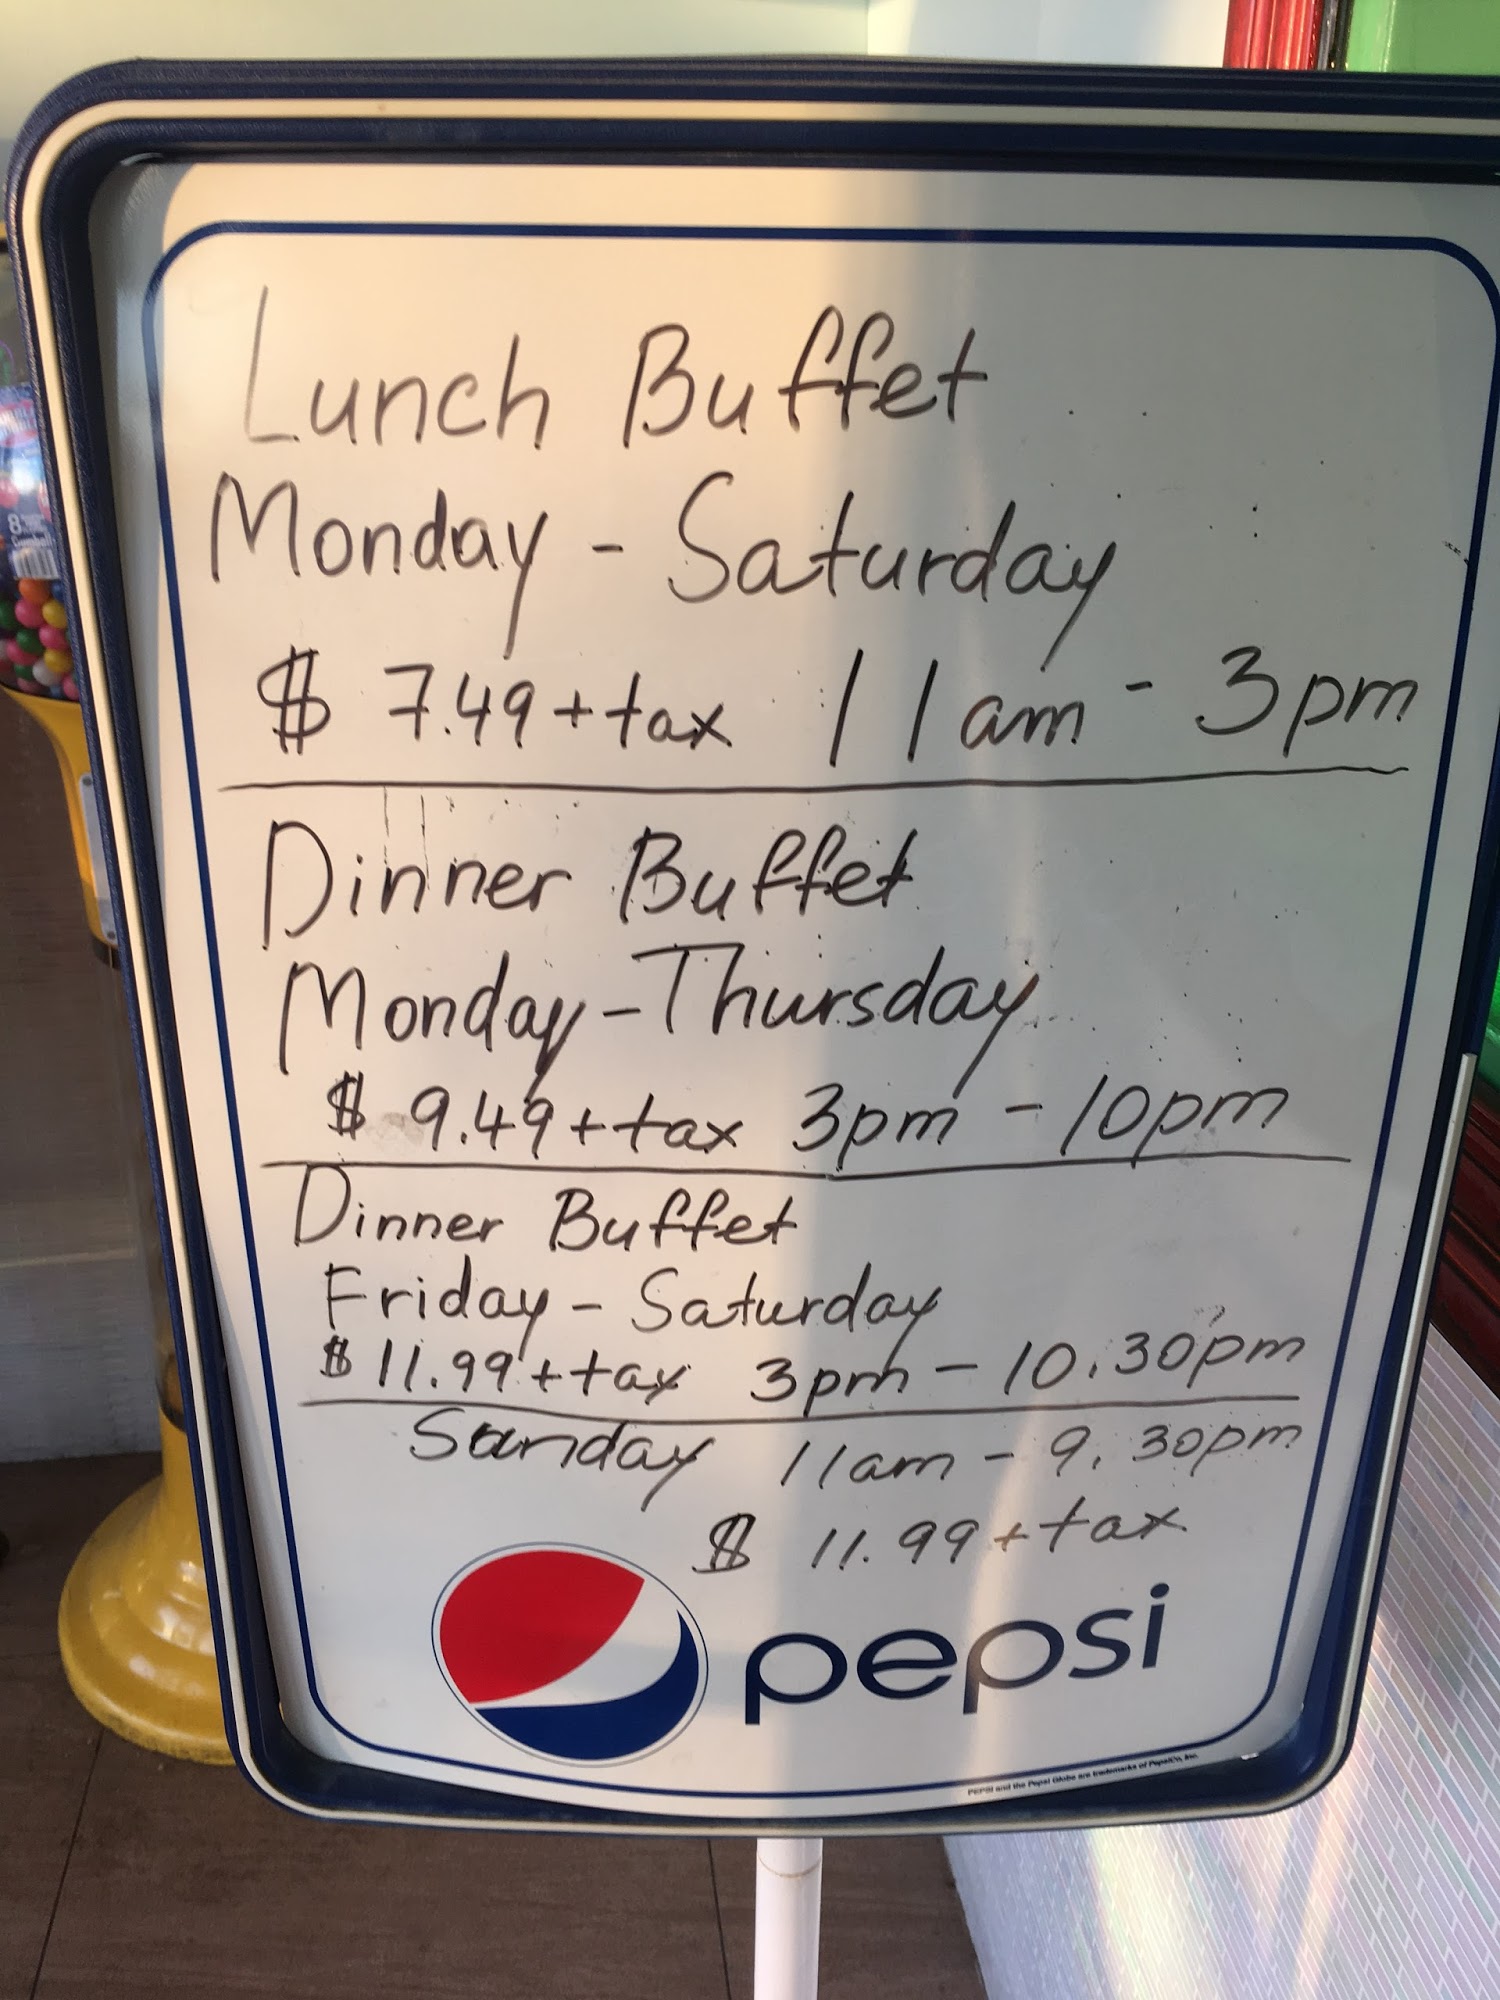 Lunch Buffet
Monday - Saturday
$ 7.49 + tax 11am - 3pm
Dinner Buffet
Monday - Thursday
$ 9.49 + tax 3pm - 10pm
Dinner Buffet
Friday - Saturday
$ 11.99 + tax 3pm - 10.30pm
Sunday 11am - 9.30pm
$ 11.99 + tax
pepsi
PEPSI and the Pepsi Globe are trademarks of PepsiCo, Inc.
8